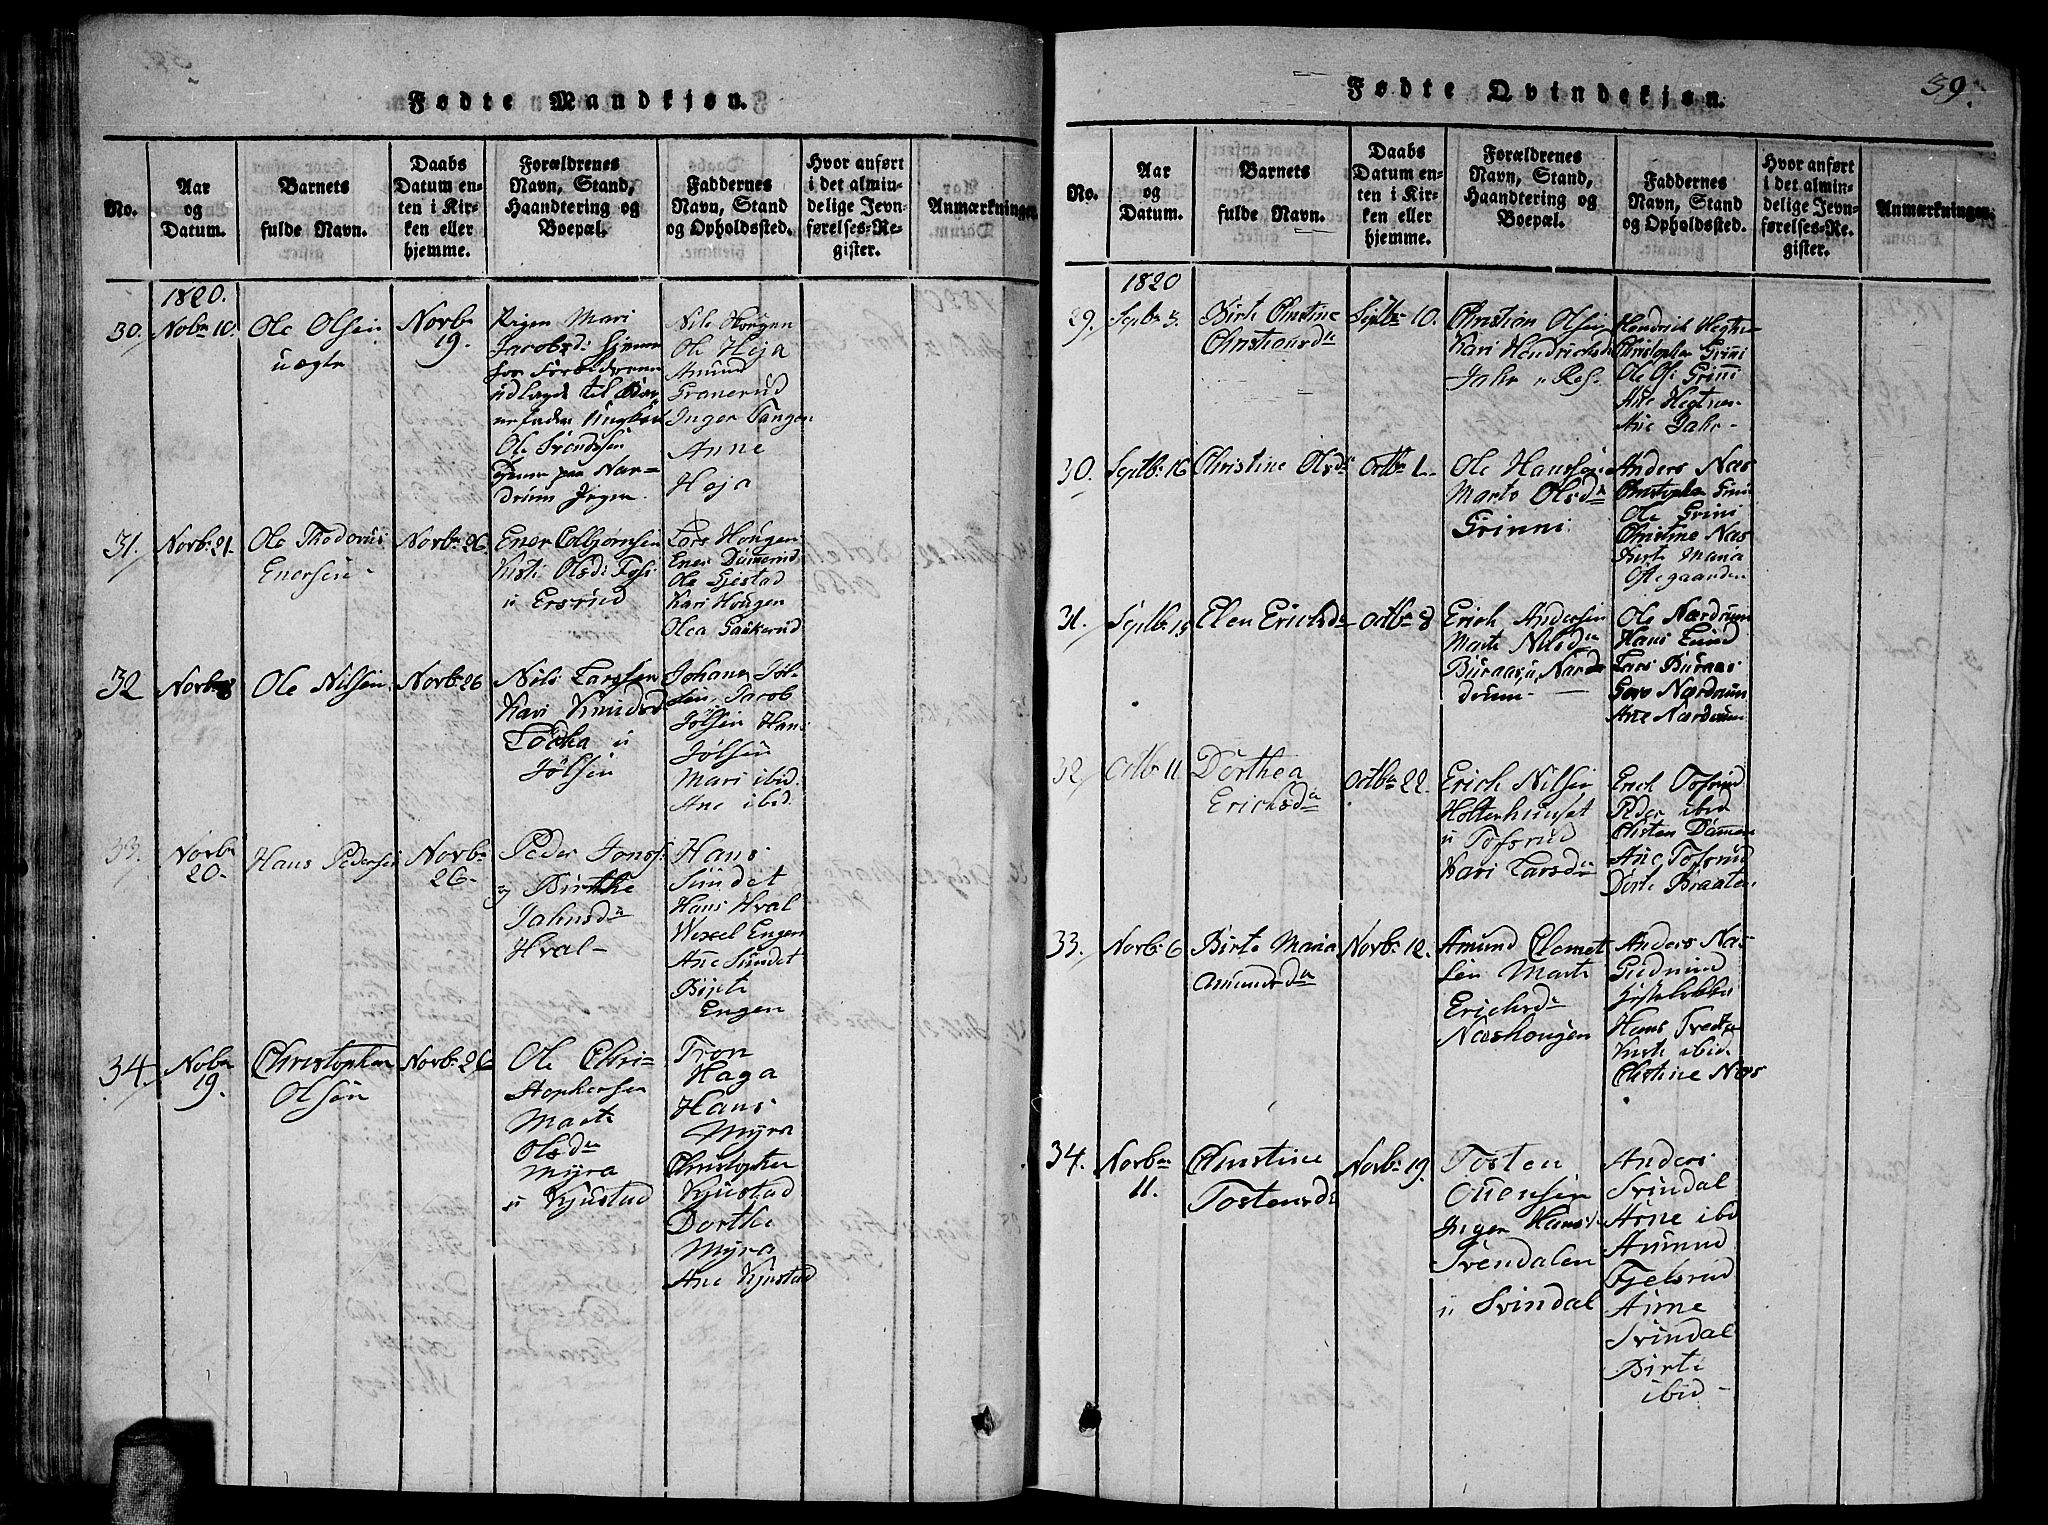 Fødte Mandkjøn.
No.
Aar
og
Datum.
Barnets
fulde Navn.
Daabs
Datum en-
ten i Kir-
ken eller
hjemme.
Forældrenes
Navn, Stand,
Haandtering og
Boepæl.
Faddernes
Navn, Stand
og Opholdssted.
Hvor anført
i det almin-
delige Jevn-
førelses-Re-
gister.
Anmærkninger.
1820.
30.
Nobr 10.
Ole Olsen
uægte
Novbr
19.
Pigen Mari
Jacobsdr
udlagde til
Ole Svendsen
paa Nar-
drum
Nils Hougen
Ole Heja
Amund
Granerud
Inger Tangen
Anne
Heja
31.
Novbr 21.
Ole Thodorus
Enersen
Novbr 26.
Ener Colbjørnsen
Kirsti Olsdr Foss
u Ersrud
Lars Hougen
Ener Damerud
Ole Gjestad
Kari Hougen
Olea Gaukerud
32
Novbr 8
Ole Nilsen
Novbr 26
Nils Larssen
Kari Knudsd
Lodka u
Jølsen
Johanes Jøl-
sen, Jacob
Jølsen Hans
Jølsen
Mari ibid.
Ane ibid.
33.
Novbr
20.
Hans Pedersen
Novbr
26.
Peder Jonss:
og Birthe
Jahnsdr
Hval
Hans
Sundet
Hans Hval
Wexel Engen
Ane Sundet
Birte
Engen
34.
Nobr
19.
Christopher
Olsen
Novbr 26
Ole Chri-
stophersen
Marte
Olsdr
Myra
u Kjustad
Tron
Haga
Hans
Myra
Christopher
Kjustad
Dorthe
Myra
Ane Kjustad
Fødte Qvindekjøn.
39.
No.
Aar
og
Datum.
Barnets
fulde Navn.
Daabs
Datum en-
ten i Kir-
ken eller
hjemme.
Forældrenes
Navn, Stand,
Haandtering og
Boepæl.
Faddernes
Navn, Stand
og Opholdssted.
Hvor anført
i det almin-
delige Jevn-
førelses-Re-
gister.
Anmærkninger.
1820
29.
Septbr 3.
Birte Christine
Christiansdr
Septbr 10.
Christian Olsen
Kari Hendrichsdr
Jahr u Res.
Hendrich Hegtner
Christopher Grini
Ole Ols: Grini
Ane Hegtner
Ane Jahr
30.
Septbr 16
Christine Olsdr
Octbr 1.
Ole Hanssen
Marte Olsdr
Grinni
Anders Nas
Christopher Grini
Ole Grini
Christine Nas
Birte Maria
Ostegaarden
31.
Septbr 15
Elen Erichsdr
Octbr 8
Erich Andersen
Marte Nilsdr
Buraas u Nar-
drum
Ole Nardrum
Hans Lund
Lars Buraas
Goro Nardrum
Ane Nardrum
32
Octbr 11
Dorthea
Erichsdr
Octbr 22.
Erich Nilsen
Holterhuuset
u Tofsrud
Kari Larsdr
Erich Tofsrud
Peder ibid
Christen Dammen
Ane Tofsrud
Dorte Braaten
33.
Novbr 6
Birte Maria
Amundsdr
Novbr 12.
Amund Clemet
sen Marte
Erichsdr
Nashougen
Anders Nas
Gudmund
Hans Tvedter
Kirsti ibid
Christine Nas
34.
Novbr
11.
Christine
Tostensdr
Novbr 19.
Tosten
Ouensen
Inger Hansdr
Svendalen
u Svindal
Anders
Svindal
Arne ibid
Amund
Fjelsrud
Anne
Svindal
Birte
ibid